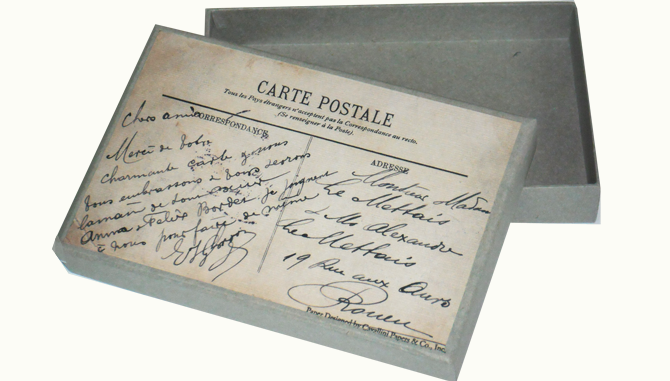 CARTE POSTALE
Tous les Pays étrangers n'acceptent pas la Correspondance au recto.
(Se renseigner à la Poste).
CORRESPONDANCE
Merci de votre
charmante carte nous
vous embrassons
maman
Anna Felix Bordet je joignent
à vous pour faire de même
ADRESSE
Monsieur Madame
Le Mettais
Alexandre
Le Mettais
19 Rue aux Ours
Rouen
Paper Designed by Cavallini Papers & Co., Inc.